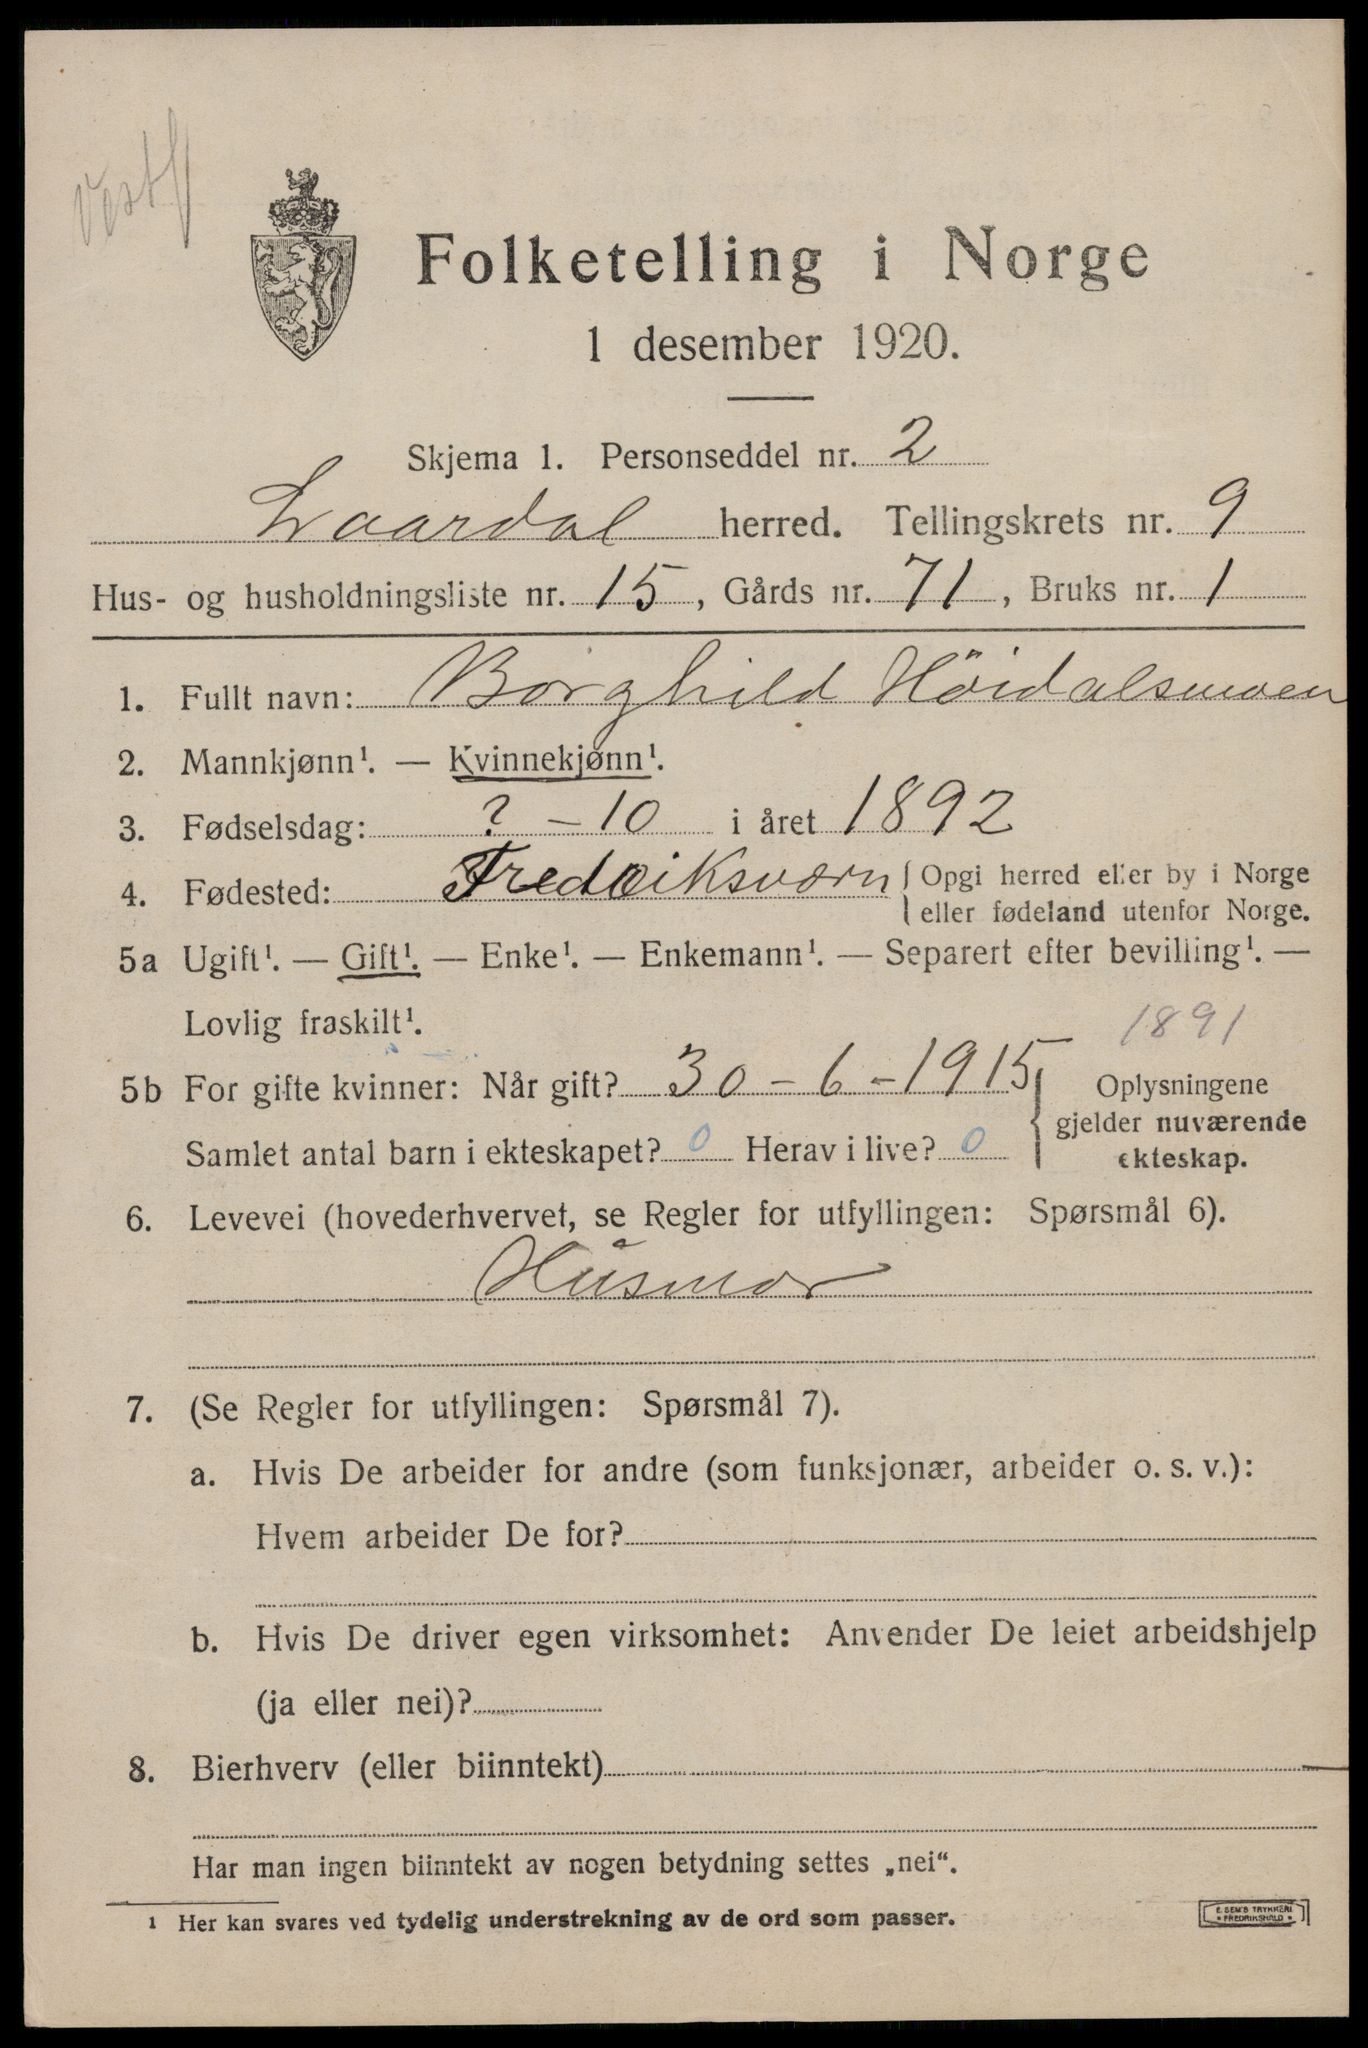 Vestf
Folketelling i Norge
1 desember 1920.
Skjema 1. Personseddel nr. 2
Laardal herred. Tellingskrets nr. 9
Hus- og husholdningsliste nr. 15, Gårds nr. 71, Bruks nr. 1
1. Fullt navn: Borghild Höidalsmoen
2. Mannkjønn¹. — Kvinnekjønn¹.
3. Fødselsdag: ? - 10 i året 1892
4. Fødested: Fredriksværn { Opgi herred eller by i Norge
eller fødeland utenfor Norge.
5a Ugift¹. — Gift¹. — Enke¹. — Enkemann¹. — Separert efter bevilling¹. —
Lovlig fraskilt¹.
1891
5b For gifte kvinner: Når gift? 30 - 6 - 1915 { Oplysningene
gjelder nuværende
Samlet antal barn i ekteskapet? 0 Herav i live? 0
ekteskap.
6. Levevei (hovederhvervet, se Regler for utfyllingen: Spørsmål 6).
Husmor
7. (Se Regler for utfyllingen: Spørsmål 7).
a. Hvis De arbeider for andre (som funksjonær, arbeider o. s. v.):
Hvem arbeider De for?
b. Hvis De driver egen virksomhet: Anvender De leiet arbeidshjelp
(ja eller nei)?
8. Bierhverv (eller biinntekt)
Har man ingen biinntekt av nogen betydning settes „nei“.
¹ Her kan svares ved tydelig understrekning av de ord som passer.
E. SEM'S TRYKKERI
* FREDRIKSHALD *